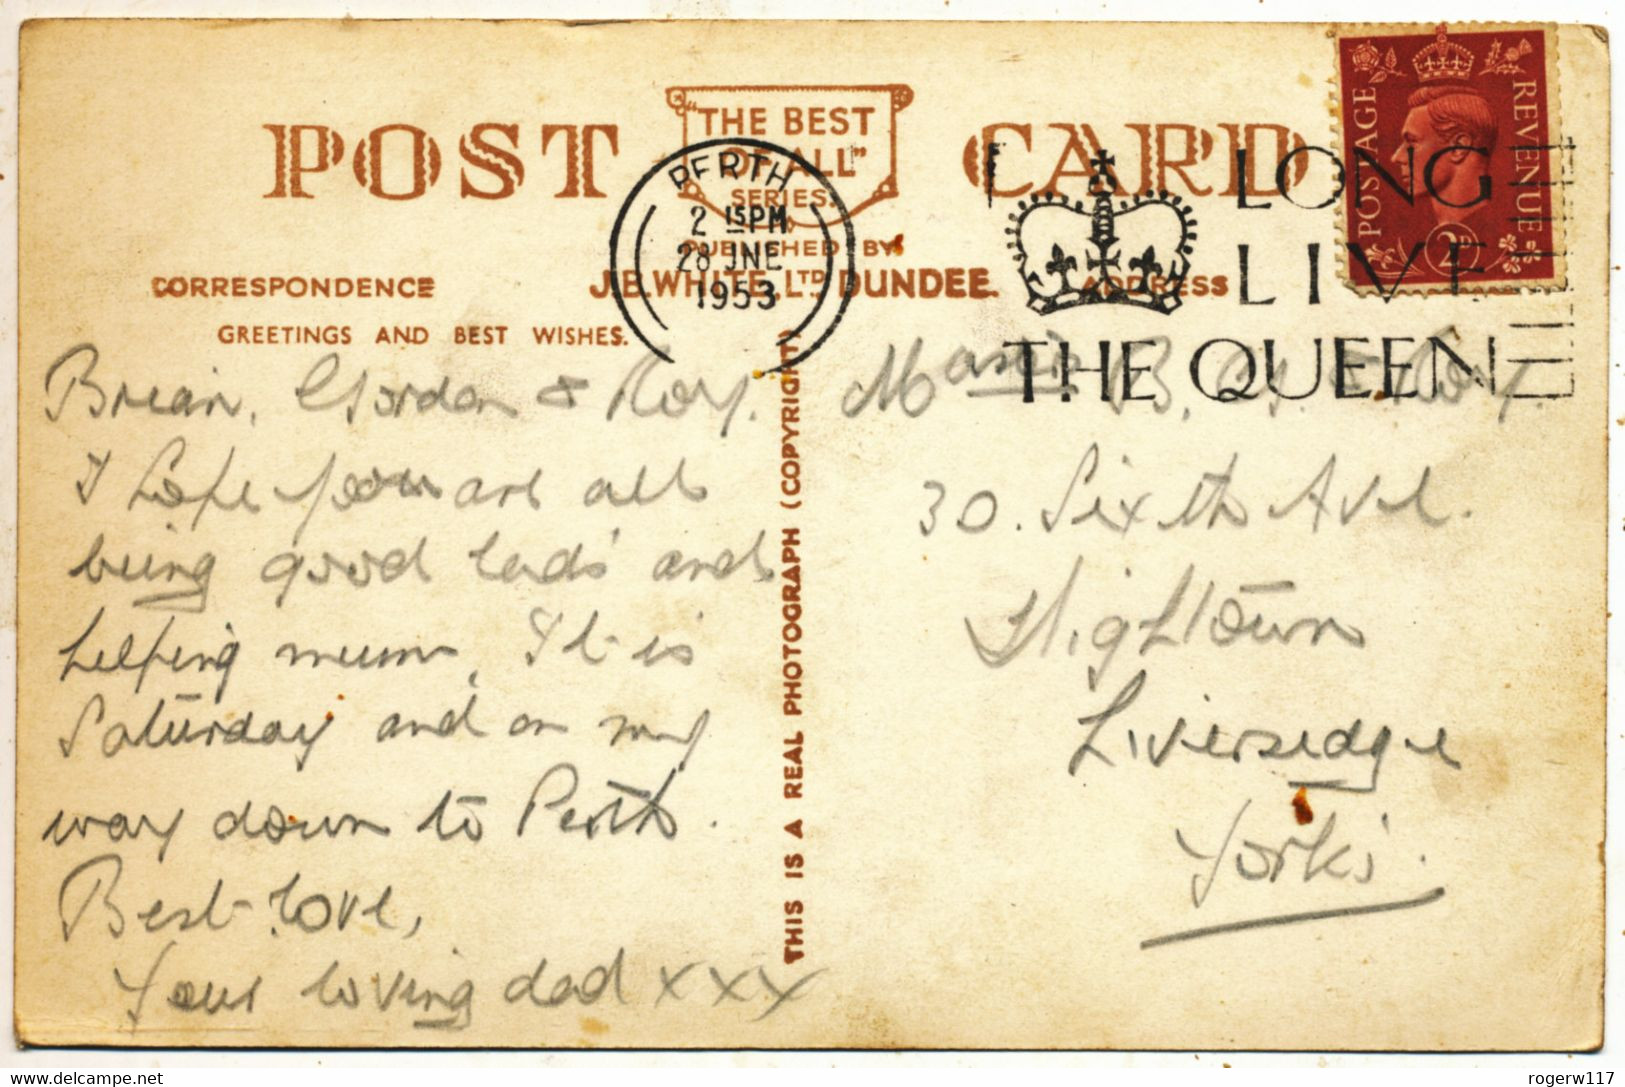 POST CARD
"THE BEST
OF ALL"
SERIES.
PUBLISHED BY
J.B. WHITE, LTD DUNDEE.
PERTH
2 15PM
28 JNE
1953
LONG
LIVE
THE QUEEN
POSTAGE
REVENUE
2D
CORRESPONDENCE
ADDRESS
GREETINGS AND BEST WISHES.
Brian, Gordon & Roy.
I hope you are all
being good lads and
helping mum, It is
Saturday and on my
way down to Perth.
Best love,
Your loving dad xxx
THIS IS A REAL PHOTOGRAPH (COPYRIGHT)
B, G. & Roy.
30. Sixth Ave.
Hightown
Liversedge
Yorks.
delcampe.net
rogerw117